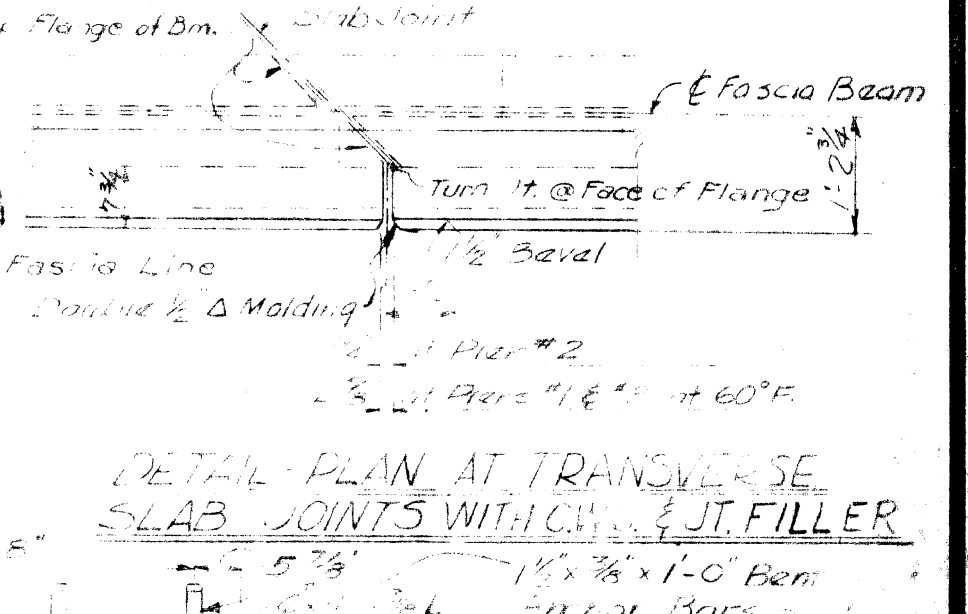 Flange of Bm.
Slab Joint
℄ Fascia Beam
1'-2 3/4"
7 3/4"
Turn Jt. @ Face of Flange
1 1/2" Bevel
Fascia Line
Double 1/2" Δ Molding
Pier #2
Piers #1 & at 60°F.
DETAIL-PLAN AT TRANSVERSE
SLAB JOINTS WITH & JT. FILLER
8"
5 7/8"
1 1/2" x 3/8" x 1'-0" Bent
Anchor Bars